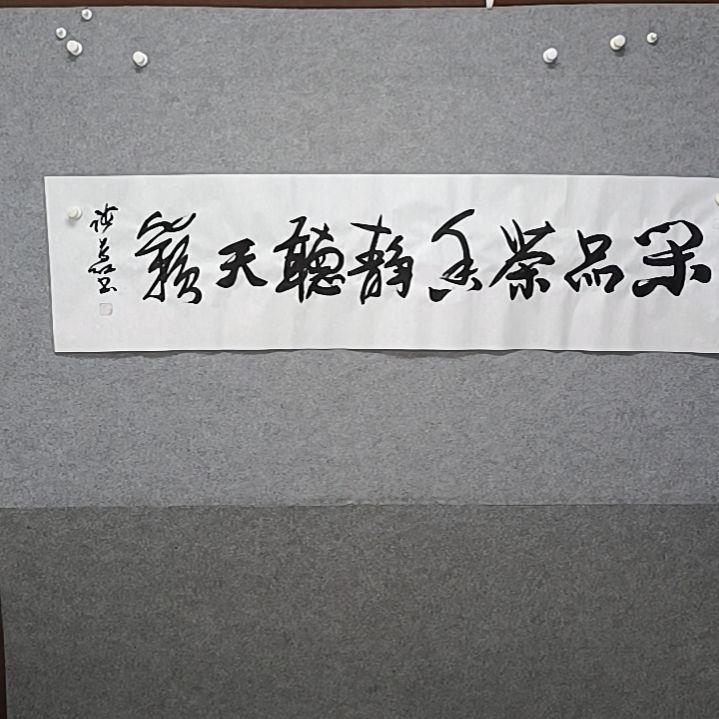 閑品茶香靜聽天籟